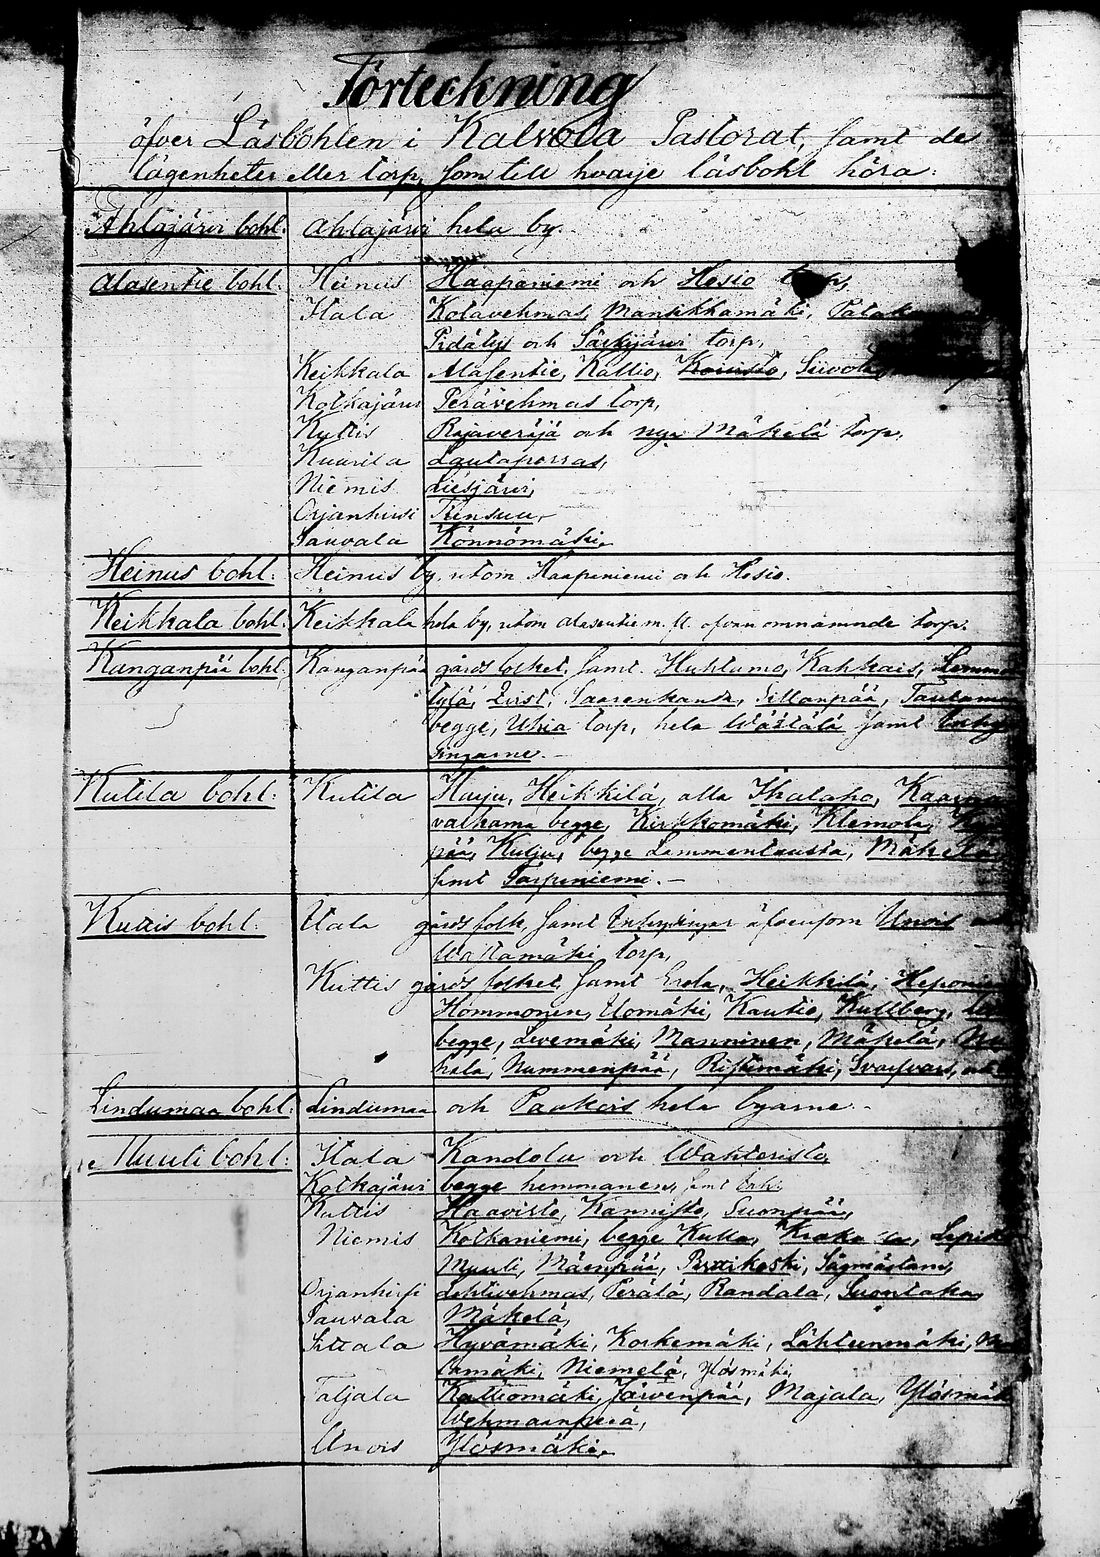 Förteckning
öfver Läsbohlen i Kalvola Pastorat, samt de
lägenheter eller torp, som till hvarje läsbohl höra:
Ahlajärvi bohl. Ahlajärvi hela by.
Alasentie bohl. Heinus Haapaniemi och Hesio
Itala Kotavehmas, Mansikkamäki,
Pidätys och Särkijärvi torp,
Keikkala Alasentie, Kallio, Koivisto,
Kotkajärvi Perävehmas torp,
Kuttis Rajaveräjä och nya Mäkelä torp,
Kuurila Lautaporras,
Niemis Liesjärvi,
Orjanhirsi Rensuu,
Sauvala Könnömäki,
Heinus bohl. Heinus by, utom Haapaniemi och Hesio.
Keikkala bohl. Keikkala hela by, utom Alasentie m. fl. ofvan omnämnde torp.
Kanganpää bohl. Kanganpää gårds folket, samt Huhtamo, Kahkais,
Saarenkanta, Sillanpää,
begge, Uhia torp, hela Wästälä samt
Kutila bohl. Kutila Harju, Heikkilä, alla Ihalaho,
valkama begge, Kirkkomäki, Klemola,
pää, Kulju, begge Lammentausta, Mäkelä
samt Sarpaniemi.
Kuttis bohl. Itala gårds folk, samt Inhysingar äfvensom Unois
Wartiamäki torp,
Kuttis gårds folket samt Erola, Heikkilä,
Hommonen, Ilomäki, Kautio, Kullberg,
begge, Levemäki, Manninen, Mäkelä,
hala, Nummenpää, Ristimäki, Svarfvars,
Lindumaa bohl. Lindumaa och Paukois hela byarne.
Muuli bohl. Itala Kandola och Wahteristo,
Kotkajärvi begge hemmanen, samt
Kuttis Haavisto, Kannisto, Suonpää,
Niemis Kotkaniemi, begge Kulla,
Muuli, Mäenpää, Perttikoski, Sågmästare,
Orjanhirsi Lehtivehmas, Perälä, Randala, Suontaka,
Sauvala Mäkelä,
Sittala Hyvämäki, Korkemäki, Lähteenmäki,
Niemelä, Ylösmäki,
Taljala Kalliomäki, Järvenpää, Majala, Ylösmäki
Wehmaanperä,
Unois Ylösmäki,